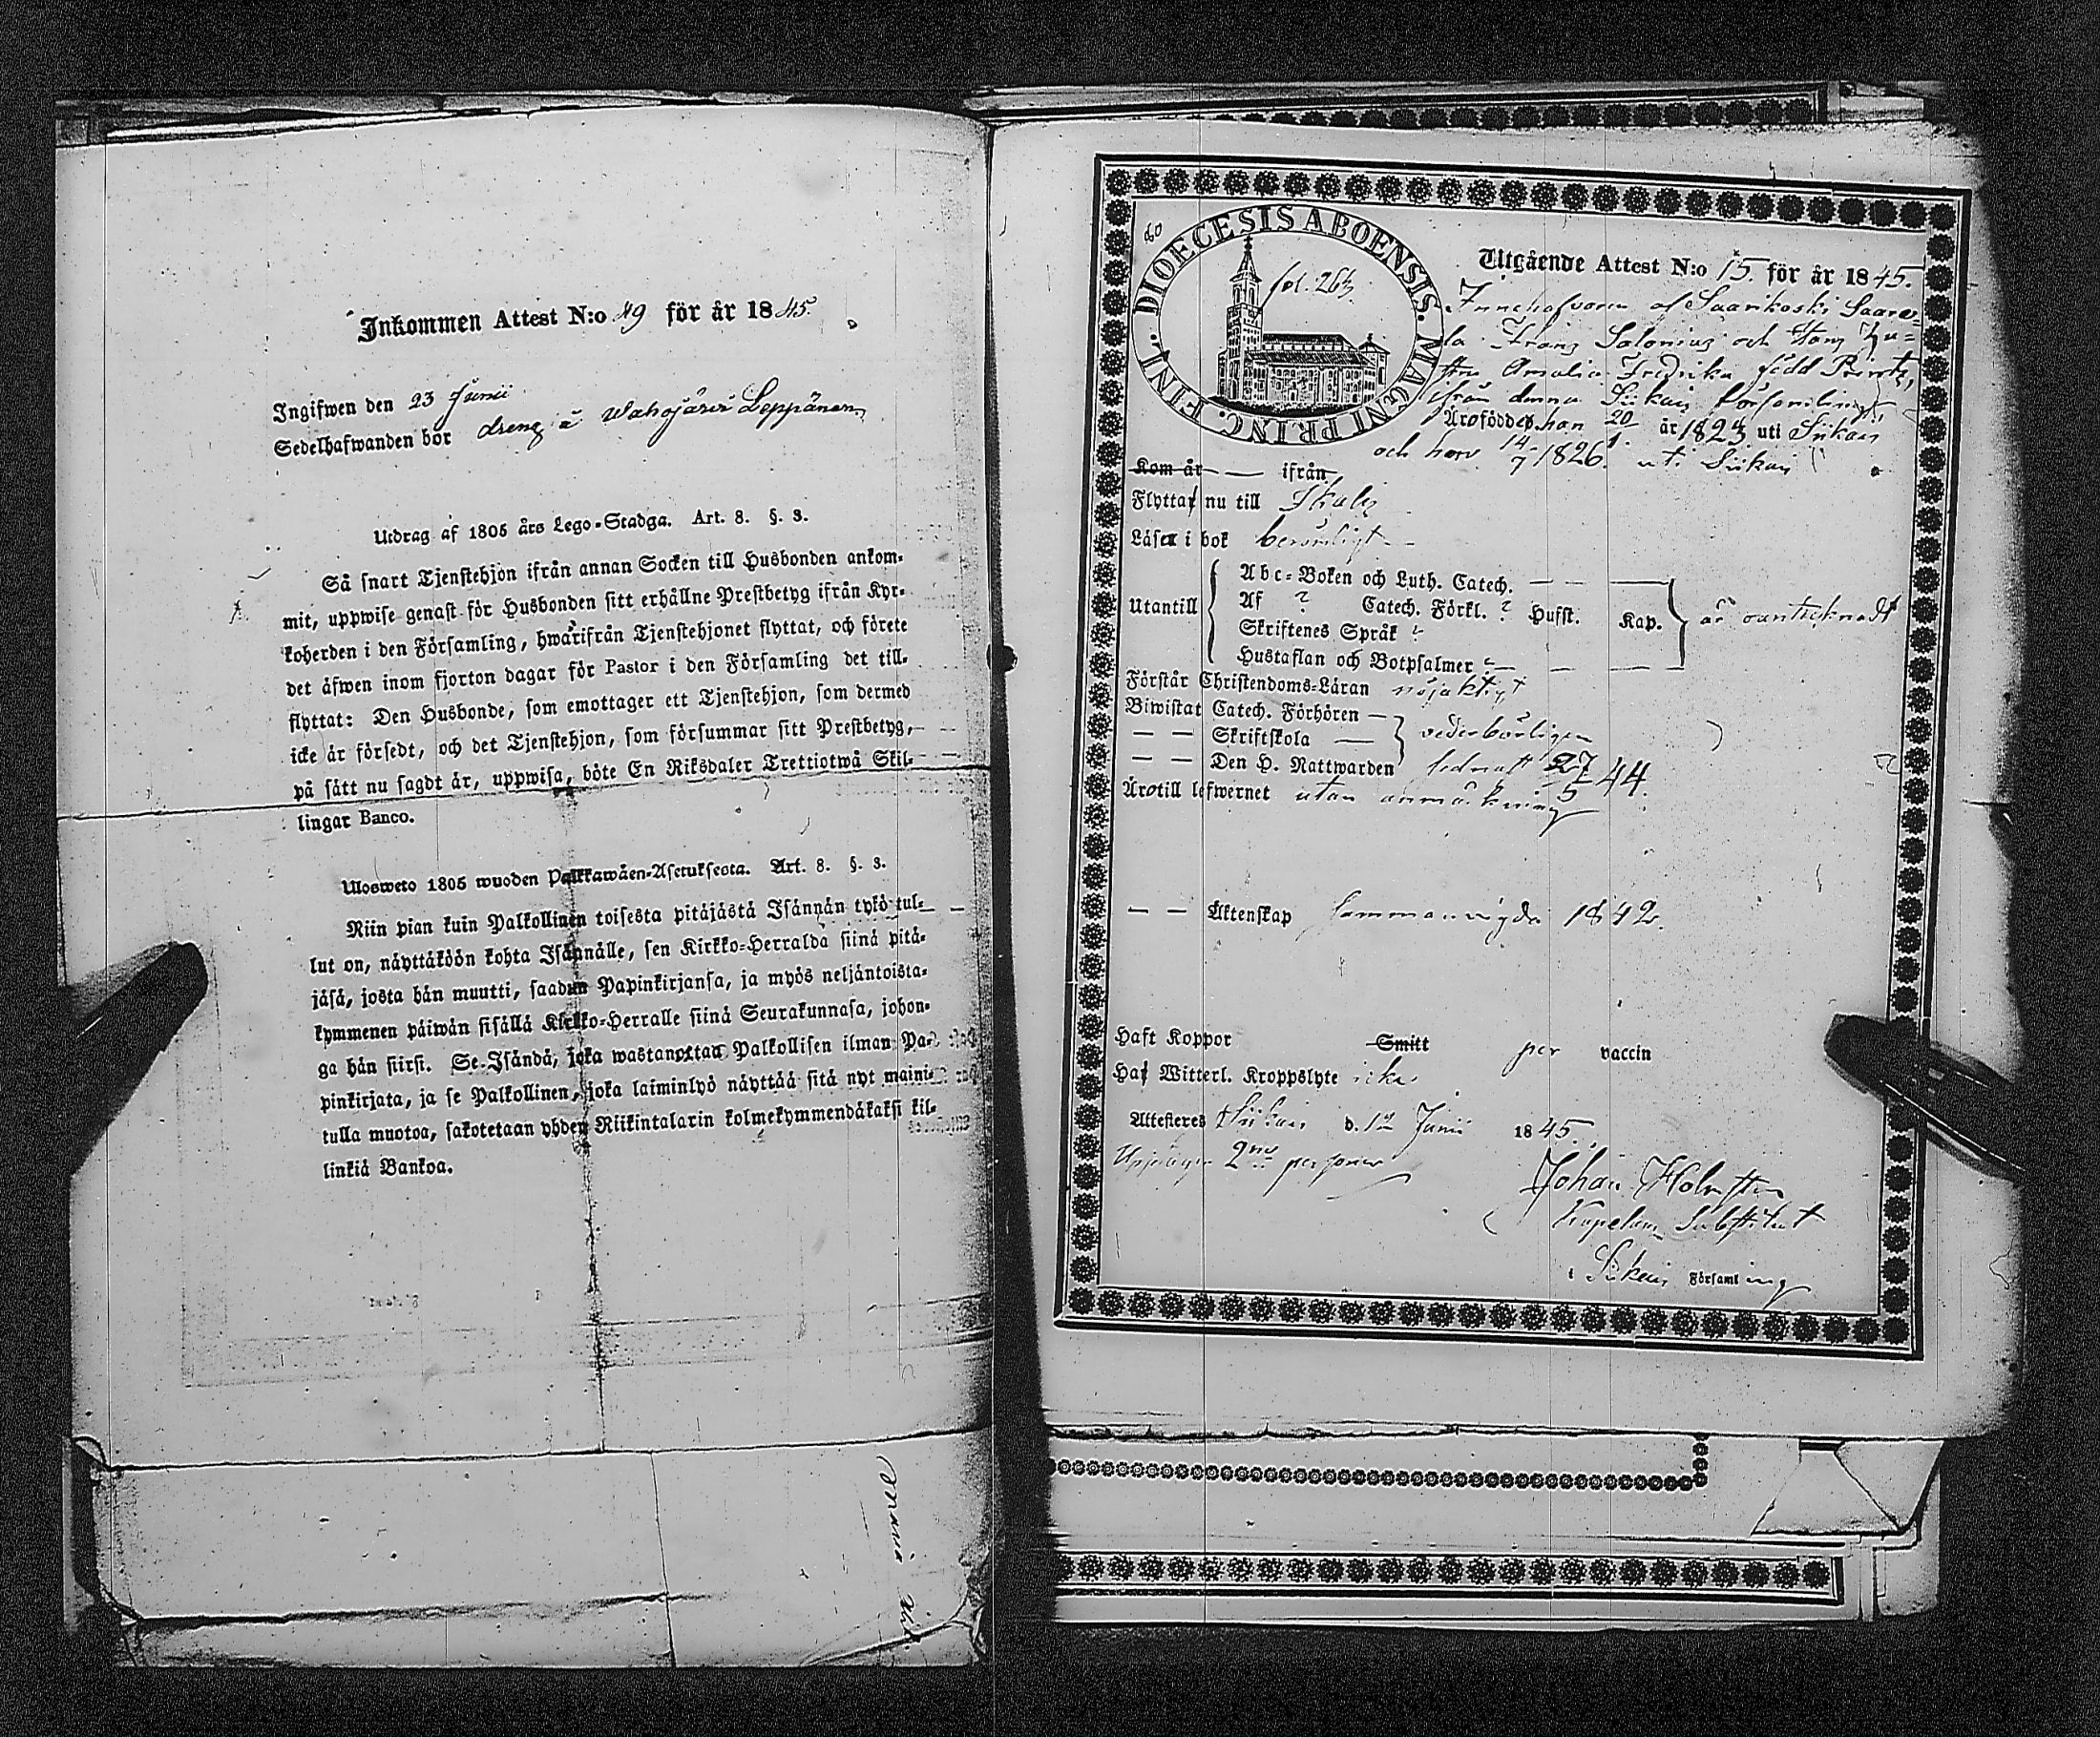 Inkommen Attest N:o 49 för år 1845.
Ingifwen den 23 Junii
Sedelhafwanden bor dreng å Wahojärvi Leppänen
Utdrag af 1805 års Lego-Stadga. Art. 8. §. 3.
Så snart Tjenstehjon ifrån annan Socken till Husbonden ankom-
mit, uppwise genast för Husbonden sitt erhållne Prestbetyg ifrån Kyr-
koherden i den Församling, hwarifrån Tjenstehjonet flyttat, och förete
det äfwen inom fjorton dagar för Pastor i den Församling det till-
flyttat: Den Husbonde, som emottager ett Tjenstehjon, som dermed
icke är försedt, och det Tjenstehjon, som försummar sitt Prestbetyg,
på sätt nu sagdt är, uppwisa, böte En Riksdaler Trettiotwå Skil-
lingar Banco.
Ulosweto 1805 wuoden Palkkawäen-Asetuksesta. Art. 8. §. 3.
Niin pian kuin Palkollinen toisesta pitäjästä Isännän tykö tul-
lut on, näyttäköön kohta Isännälle, sen Kirkko-Herralda siinä pitä-
jäsä, josta hän muutti, saadun Papinkirjansa, ja myös neljäntoista-
kymmenen päiwän sisällä Kirkko-Herralle siinä Seurakunnasa, johon-
ga hän siirsi. Se Isändä, joka wastanottaa Palkollisen ilman Pa-
pinkirjata, ja se Palkollinen, joka laiminlyö näyttää sitä nyt maini-
tulla muotoa, sakotetaan yhden Riikintalarin kolmekymmendäkaksi kil-
linkiä Bankoa.
DIOECESIS ABOENSIS. MAGNI PRINC. FINL.
80
fol. 263.
Utgående Attest N:o 15. för år 1845.
Innehafvaren af Saarikoski Saare-
la Frans Salonius och Hans hu-
stru Amalia Fredrika född Printz,
ifrån denna Siikais Församling,
Äro födde han 20/1 år 1823 uti Siikais
och hon 14/7 1826. uti Siikais
Kom år ifrån
Flytta nu till Ikalis
Läser i bok berömligt
Abc-Boken och Luth. Catech.
Utantill Af ? Catech. Förkl. ? Husst. Kap. är oantecknadt
Skriftenes Språk
Hustaflan och Botpsalmer
Förstår Christendoms-Läran nöjaktigt
Biwistat Catech. Förhören
Skriftskola vederbörligen
Den H. Nattwarden sednast 27/5 44.
Äro till lefwernet utan anmärkning
Äktenskap sammanvigda 1842.
Haft Koppor Smitt per vaccin
Haf Witterl. Kroppslyte icke
Attesteres Siikais d. 12 Junii 1845.
2ne personer
Johan Holmsten
Kapellans Substitut
i Siikais Församling